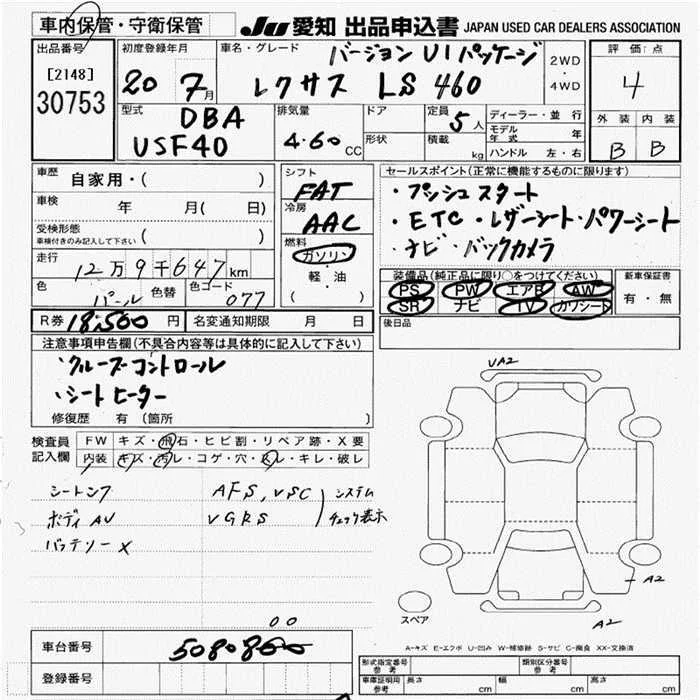 車内保管・守衛保管
JU 愛知 出品申込書 JAPAN USED CAR DEALERS ASSOCIATION
出品番号
[2148]
30753
初度登録年月
20 7月
車名・グレード
バージョン UIパッケージ
レクサス LS 460
2WD
・
4WD
評価点
4
外装 内装
B B
型式
DBA
USF40
排気量
4.60 CC
ドア
形状
定員
5人
積載
kg
ディーラー・並行
モデル年式 年
ハンドル 左・右
車歴
自家用・( )
車検
年 月( 日)
受検形態
車検付きのみ記入して下さい ( )
走行
12万9千647km
色
パール
色替
色コード
077
シフト
FAT
冷房
AAC
燃料
ガソリン
・
軽・油
( )
セールスポイント(正常に機能するものに限ります)
・プッシュスタート
・ETC・レザーシート・パワーシート
・ナビ・バックカメラ
装備品(純正品に限り○をつけてください)
PS PW エアB AW
SR ナビ TV カワシート
新車保証書
有・無
R券 18,500円
名変通知期限 月 日
後日品
注意事項申告欄(不具合内容等は具体的に記入して下さい)
・クルーズコントロール
・シートヒーター
修復歴 有(箇所 )
検査員
記入欄
FW キズ・飛石・ヒビ割・リペア跡・X要
内装 キズ・汚レ・コゲ・穴・スレ・キレ・破レ
シートシワ
ボディAU
バッテリーX
AFS,VSC
VGRS
システム
チェック表示
VA2
A2
A2
スペア
A-キズ E-エクボ U-凹み W-補修跡 S-サビ C-腐食 XX-交換済
00
車台番号
5080800
登録番号
形式指定番号
参考
類別区分番号
参考
車庫証明用
参考
長さ cm
幅 cm
高さ cm